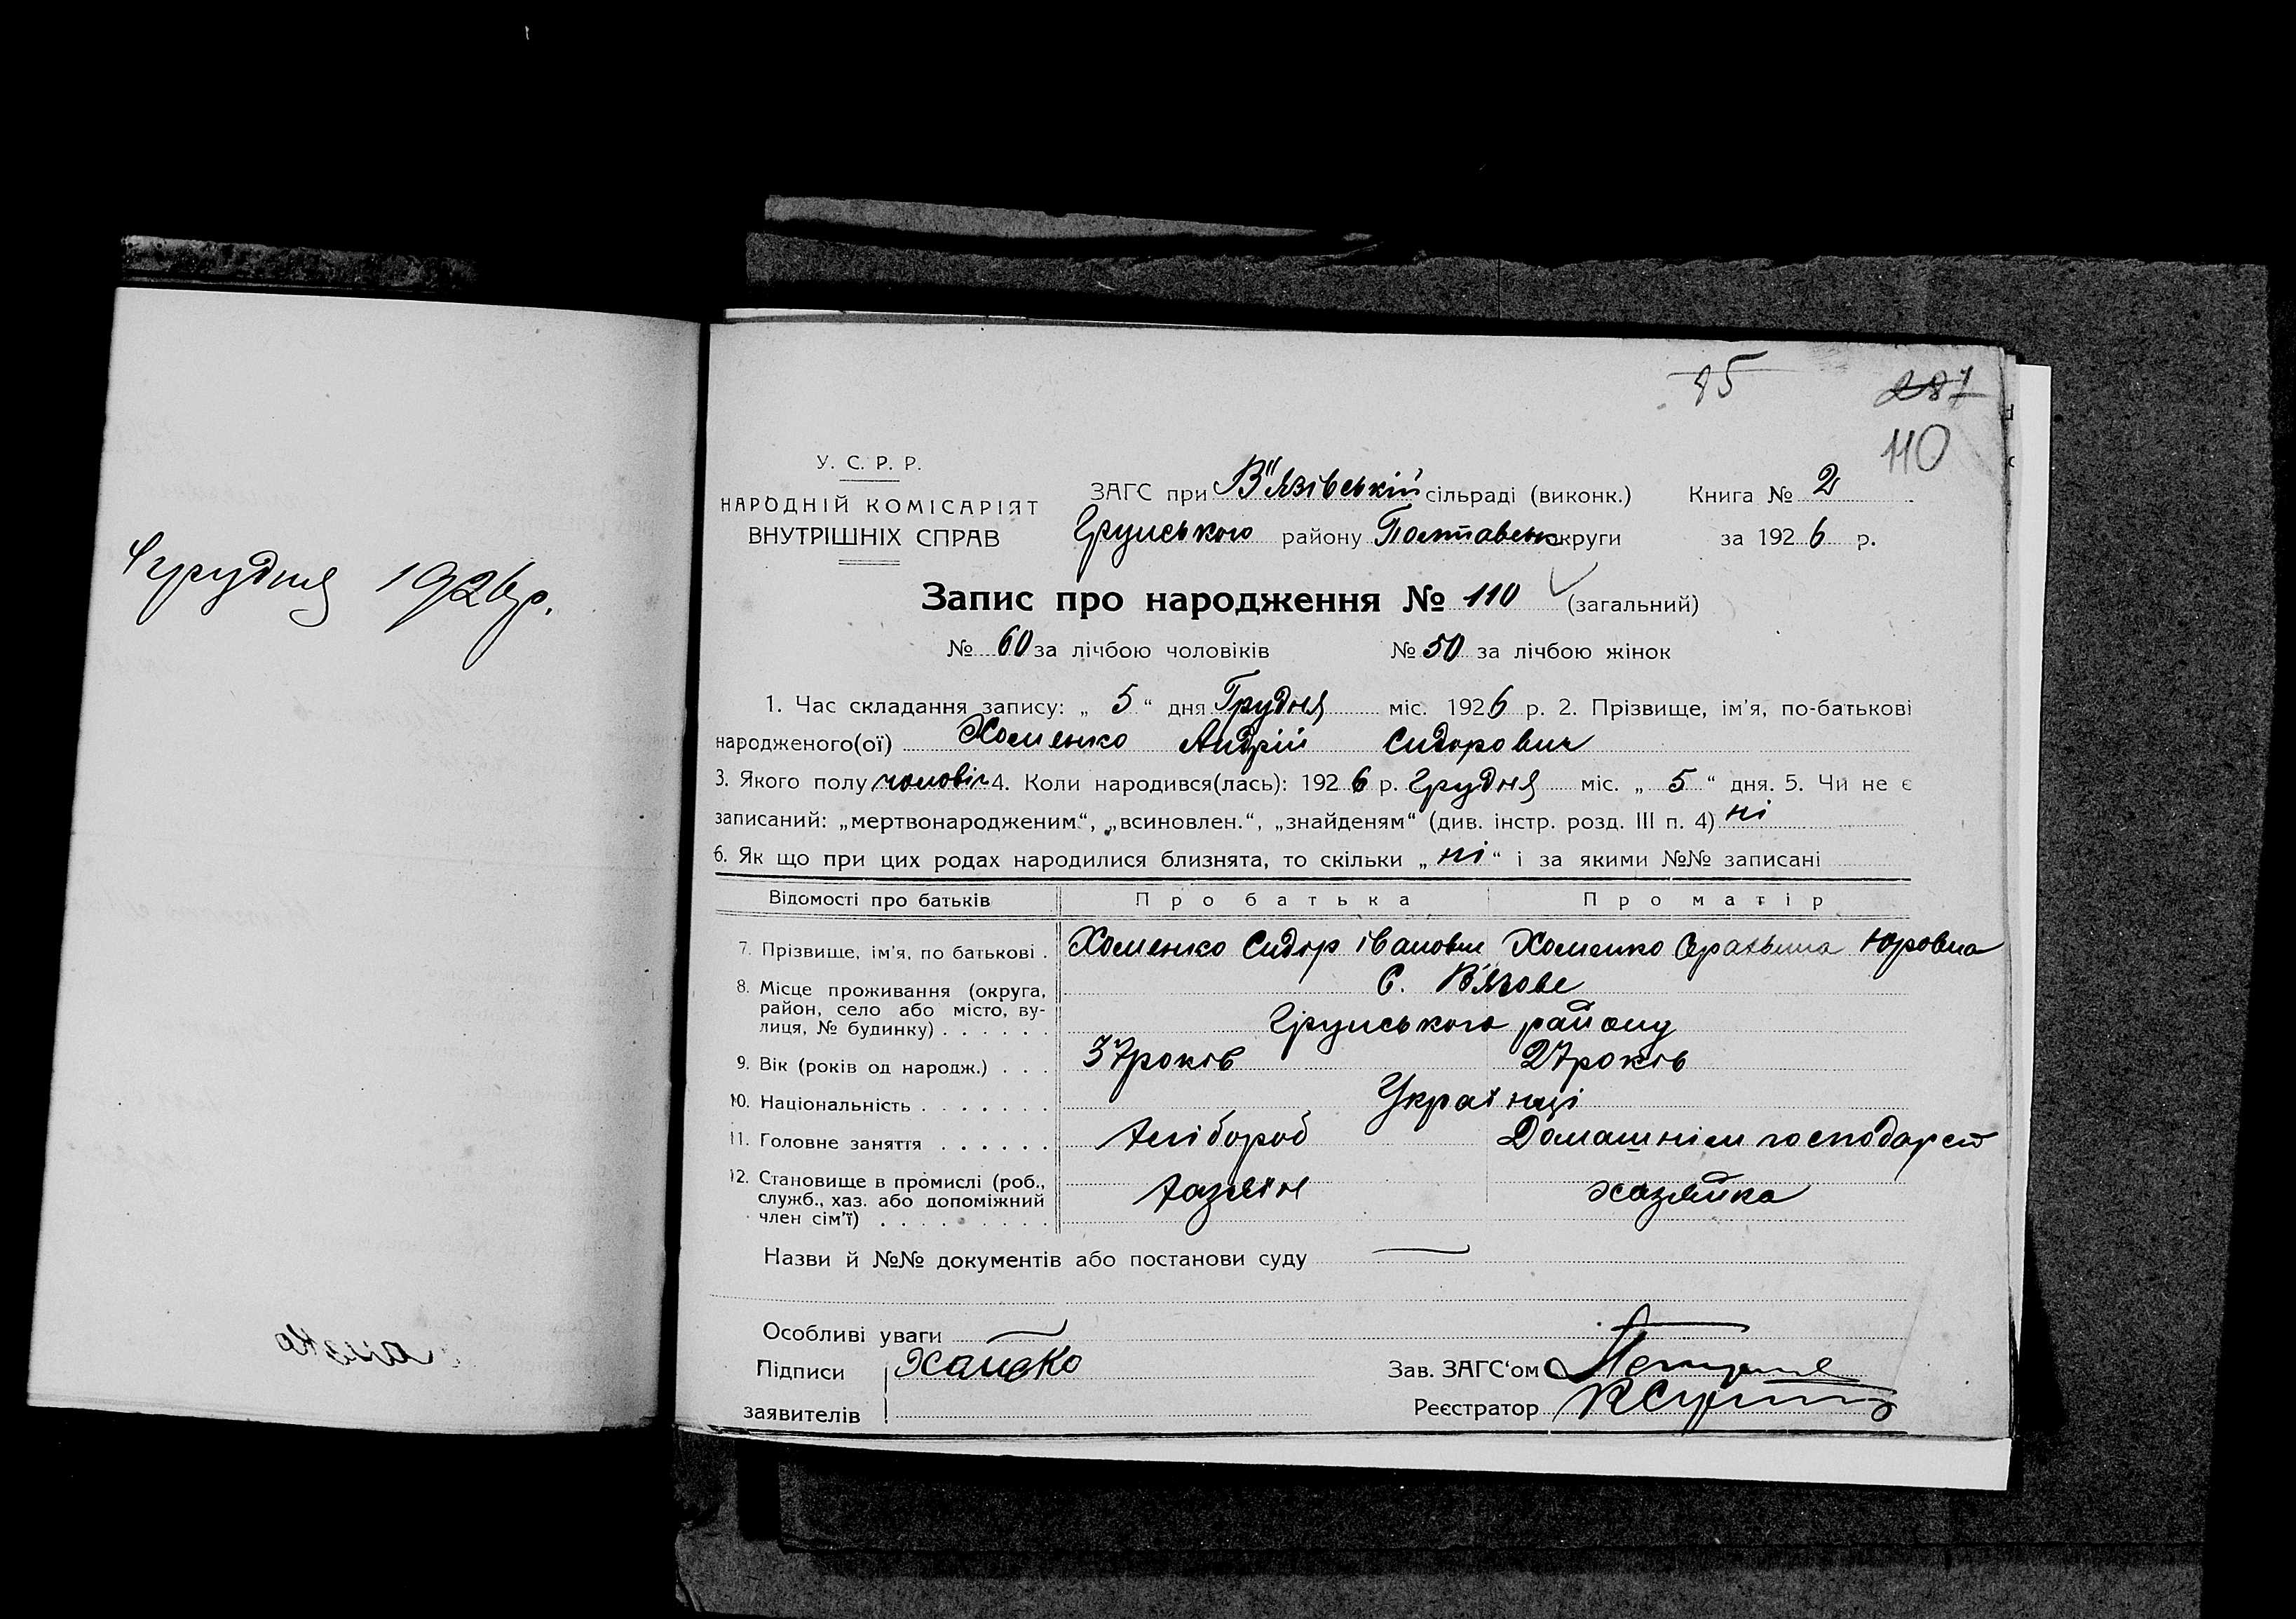 грудня 1926р.
85
287
110
У. С. Р. Р.
НАРОДНІЙ КОМІСАРІЯТ
ВНУТРІШНІХ СПРАВ
ЗАГС при В"язівській сільраді (виконк.) Книга № 2
Грунського району Полтавськ округи за 1926 р.
Запис про народження № 110 (загальний)
№ 60 за лічбою чоловіків № 50 за лічбою жінок
1. Час складання запису: „ 5 “ дня Грудня міс. 1926 р. 2. Прізвище, ім'я, по-батькові
народженого(ої) Хоменко Андрій Сидорович
3. Якого полу чоловіч 4. Коли народився(лась): 1926 р. Грудня міс. „ 5 “ дня. 5. Чи не є
записаний: „мертвонародженим“, „всиновлен.“, „знайденям“ (див. інстр. розд. III п. 4) ні
6. Як що при цих родах народилися близнята, то скільки „ ні “ і за якими №№ записані
Відомості про батьків Про батька Про матір
7. Прізвище, ім'я, по батькові . Хоменко Сидір Іванович Хоменко Юровна
8. Місце проживання (округа, С. В'язове
район, село або місто, ву-
лиця, № будинку) . . . . . . Грунського району
9. Вік (років од народж.) . . . 37років 27років
10. Національність . . . . . . . Українці
11. Головне заняття . . . . . . Хлібороб Домашнім господарст
12. Становище в промислі (роб., Хазяїн хазяйка
служб., хаз. або допоміжний
член сім'ї) . . . . . . . . .
Назви й №№ документів або постанови суду —
Особливі уваги —
Підписи
заявителів
Зав. ЗАГС'ом
Реєстратор